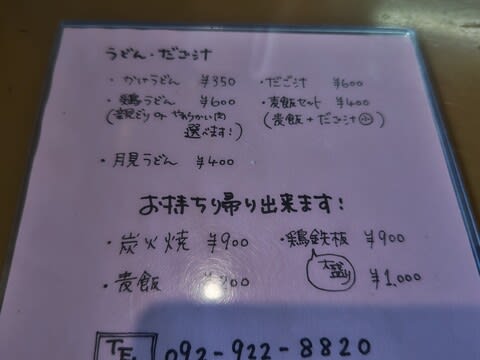 うどん・だご汁
・かけうどん ¥350 ・だご汁 ¥600
・鶏うどん ¥600 ・麦飯セット ¥400
(親どり or やわらかい肉 (麦飯+だご汁小)
選べます!)
・月見うどん ¥400
お持ち帰り出来ます!
・炭火焼 ¥900 ・鶏鉄板 ¥900
大盛り ¥1,000
・麦飯
TEL 092-922-8820